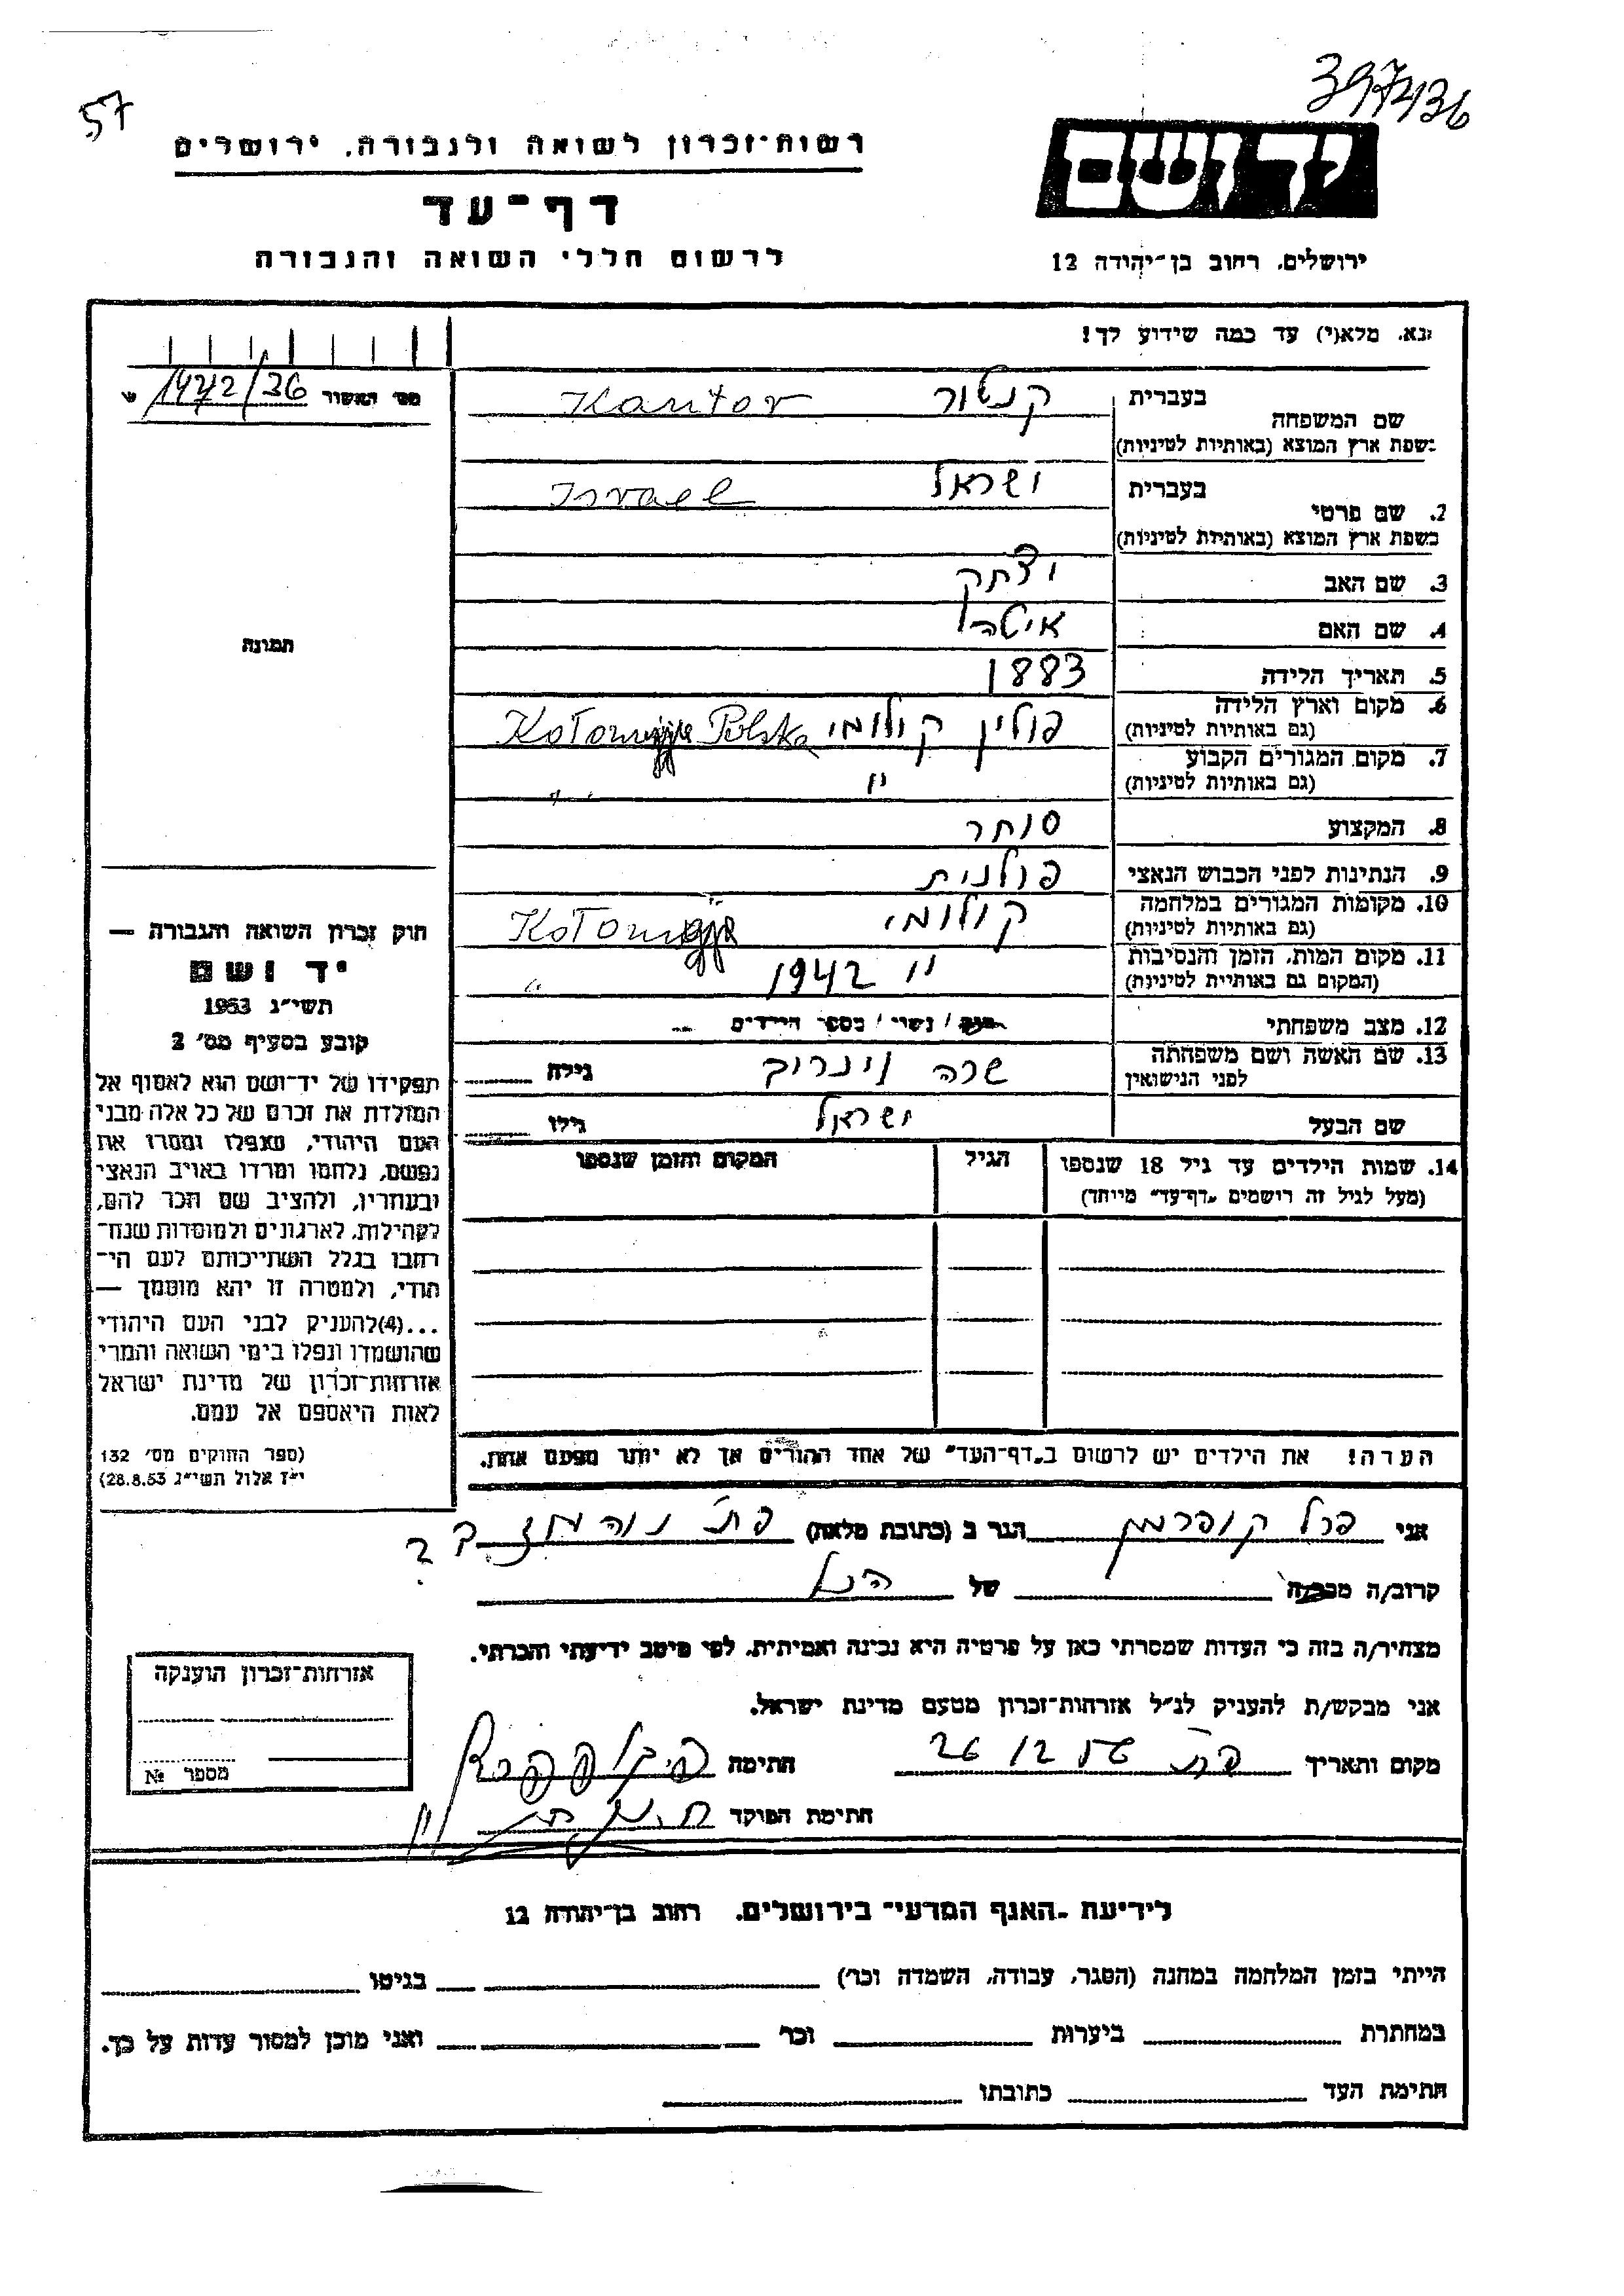 397436
57
רשות-זכרון לשואה ולגבורה, ירושלים
דף-עד
לרשום חללי השואה והגבורה
יד ושם
ירושלים, רחוב בן-יהודה 12
נא, מלא(י) עד כמה שידוע לך!
מס' האשור 1472/36
בעברית קנטור Kantor
שם המשפחה
בשפת ארץ המוצא (באותיות לטיניות)
בעברית ישראל Israel
2. שם פרטי
בשפת ארץ המוצא (באותיות לטיניות)
3. שם האב יצחק
4. שם האם
תמונה
5. תאריך הלידה 1883
6. מקום וארץ הלידה פולין קולומי Polska
(גם באותיות לטיניות)
7. מקום המגורים הקבוע "
(גם באותיות לטיניות)
8. המקצוע סוחר
9. הנתינות לפני הכבוש הנאצי פולנית
10. מקומות המגורים במלחמה קולומי
(גם באותיות לטיניות)
11. מקום המות, הזמן והנסיבות " 1942
(המקום גם באותיית לטיניות)
12. מצב משפחתי רווק / נשוי / מספר הילדים
13. שם האשה ושם משפחתה שרה גילה
לפני הנישואין
שם הבעל ישראל גילו
14. שמות הילדים עד גיל 18 שנספו הגיל המקום והזמן שנספו
(מעל לגיל זה רושמים "דף-עד" מייחד)
חוק זכרון השואה והגבורה —
יד ושם
תשי"ג 1953
קובע בסעיף מס' 2
תפקידו של יד-ושם הוא לאסוף אל
המולדת את זכרם של כל אלה מבני
העם היהודי, שנפלו ומסרו את
נפשם, נלחמו ומרדו באויב הנאצי
ובעוזריו, ולהציב שם וזכר להם,
לקהילות, לארגונים ולמוסדות שנח-
רבו בגלל השתייכותם לעם הי-
הודי, ולמטרה זו יהא מוסמך —
...(4) להעניק לבני העם היהודי
שהושמדו ונפלו בימי השואה והמרי
אזרחות-זכרון של מדינת ישראל
לאות היאספם אל עמם.
(ספר החוקים מס' 132
י"ז אלול תשי"ג 28.8.53)
הערה! את הילדים יש לרשום ב"דף-העד" של אחד ההורים אך לא יותר מפעם אחת.
אני פרל קופרמן הגר ב (כתובת מלאה)
קרוב/ה מכר/ה של הנ"ל
מצהיר/ה בזה כי העדות שמסרתי כאן על פרטיה היא נכונה ואמיתית, לפי מיטב ידיעתי והכרתי.
אני מבקש/ת להעניק לנ"ל אזרחות-זכרון מטעם מדינת ישראל.
מקום ותאריך חתימה
חתימת הפוקד
אזרחות-זכרון הוענקה
מספר №
לידיעת "האגף המדעי" בירושלים, רחוב בן-יהודה 12
הייתי בזמן המלחמה במחנה (הסגר, עבודה, השמדה וכו') בגיטו
במחתרת ביערות וכו' ואני מוכן למסור עדות על כך.
חתימת העד כתובתו